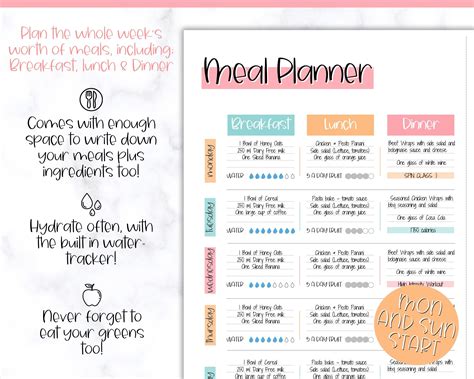 Plan the whole week's
worth of meals, including:
Breakfast, lunch & Dinner
Comes with enough
space to write down
your meals plus
ingredients too!
Hydrate often, with
the built in water-
tracker!
Never forget to
eat your greens
too!
Meal Planner
Breakfast
Lunch
Dinner
monday
1 Bowl of Honey Oats
250 ml Dairy Free milk
One Sliced Banana
WATER
Chicken + Pesto Panini
Side salad (Lettuce, tomatoes)
One glass of orange juice
5 A DAY FRUIT
Beef Wraps with side salad and
bolognaise sauce and cheese
One glass of white wine
SPIN CLASS
tuesday
1 Bowl of Honey Oats
250 ml Dairy Free milk
One large cup of coffee
WATER
Chicken + Pesto Panini
Side salad (Lettuce, tomatoes)
One glass of orange juice
5 A DAY FRUIT
Seasoned Chicken Wraps with
side salad and bolognaise sauce
One glass of Coca Cola
calories
wednesday
1 Bowl of Honey Oats
250 ml Dairy Free milk
One Sliced Banana
WATER
Chicken + Pesto Panini
Side salad (Lettuce, tomatoes)
One glass of orange juice
5 A DAY FRUIT
Beef Wraps with side salad and
bolognaise sauce and cheese
One glass of white wine
Workout
thursday
1 Bowl of Honey Oats
250 ml Dairy Free milk
One Sliced Banana
WATER
Chicken + Pesto Panini
Side salad (Lettuce, tomatoes)
One glass of orange juice
5 A DAY FRUIT
MON
AND SUN
START